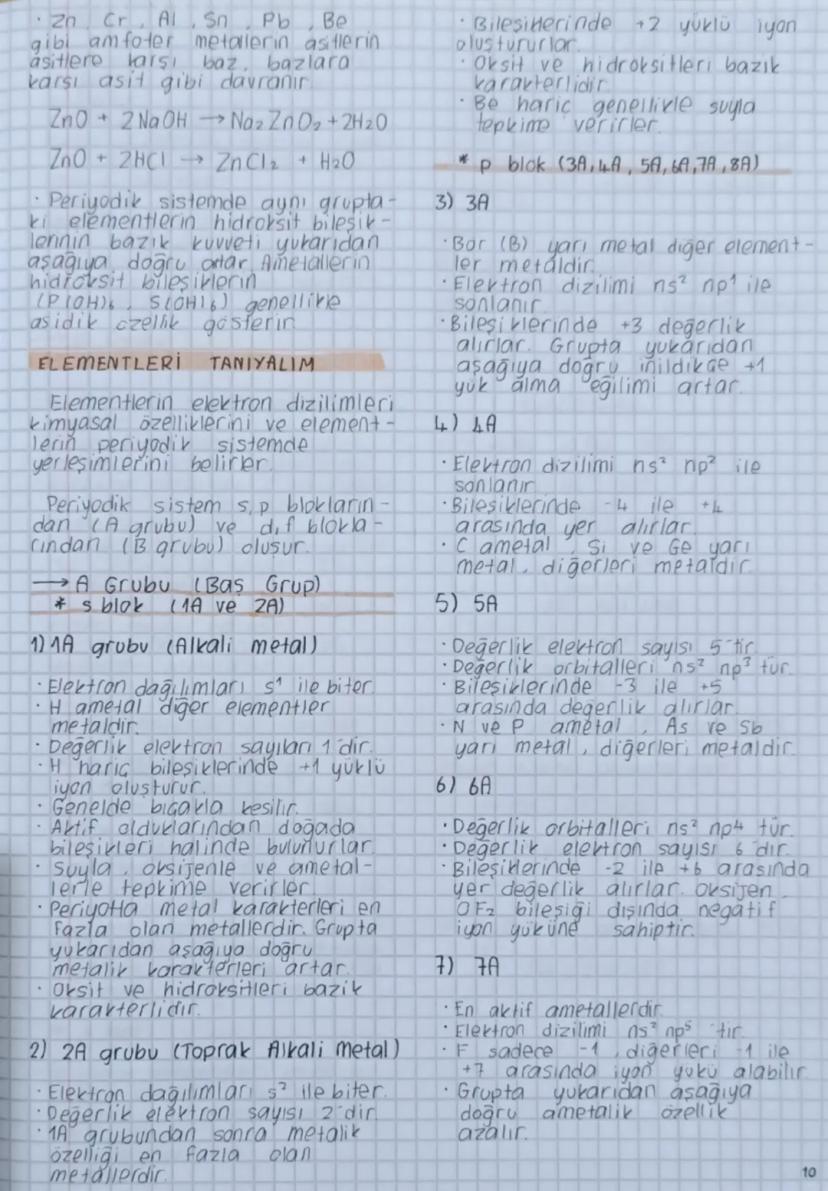 · Zn, Cr, Al, Sn, Pb, Be
gibi amfoter metallerin asitlerin
asitlere karşı baz, bazlara
karşı asit gibi davranır.
ZnO + 2NaOH → Na₂ZnO₂ + 2H₂O
ZnO + 2HCl → ZnCl₂ + H₂O
· Periyodik sistemde aynı grupta-
ki elementlerin hidroksit bileşik-
lerinin bazik kuvveti yukarıdan
aşağıya doğru artar. Ametallerin
hidroksit bileşiklerin
(P(OH)₆, S(OH)₆) genellikle
asidik özellik gösterir.
ELEMENTLERİ TANIYALIM
Elementlerin elektron dizilimleri
kimyasal özelliklerini ve element-
lerin periyodik sistemde
yerleşimlerini belirler.
Periyodik sistem s,p blokların-
dan (A grubu) ve d,f blokla-
rından (B grubu) oluşur.
→ A Grubu (Baş Grup)
* s blok (1A ve 2A)
1) 1A grubu (Alkali metal)
· Elektron dağılımları s¹ ile biter.
· H ametal diğer elementler
metaldir.
· Değerlik elektron sayıları 1'dir.
· H hariç bileşiklerinde +1 yüklü
iyon oluşturur.
· Genelde bıçakla kesilir.
· Aktif olduklarından doğada
bileşikleri halinde bulunurlar.
· Suyla, oksijenle ve ametal-
lerle tepkime verirler.
· Periyotta metal karakterleri en
fazla olan metallerdir. Grupta
yukarıdan aşağıya doğru
metalik karakterleri artar.
· Oksit ve hidroksitleri bazik
karakterlidir.
2) 2A grubu (Toprak Alkali Metal)
· Elektron dağılımları s² ile biter.
· Değerlik elektron sayısı 2'dir.
· 1A grubundan sonra metalik
özelliği en fazla olan
metallerdir.
· Bileşiklerinde +2 yüklü iyon
oluştururlar.
· Oksit ve hidroksitleri bazik
karakterlidir.
· Be hariç genellikle suyla
tepkime verirler.
* p blok (3A, 4A, 5A, 6A, 7A, 8A)
3) 3A
· Bor (B) yarı metal diğer element-
ler metaldir.
· Elektron dizilimi ns² np¹ ile
sonlanır.
· Bileşiklerinde +3 değerlik
alırlar. Grupta yukarıdan
aşağıya doğru inildikçe +1
yük alma eğilimi artar.
4) 4A
· Elektron dizilimi ns² np² ile
sonlanır.
· Bileşiklerinde -4 ile +4
arasında yer alırlar.
· C ametal, Si ve Ge yarı
metal, diğerleri metaldir.
5) 5A
· Değerlik elektron sayısı 5'tir.
· Değerlik orbitalleri ns² np³ tür.
· Bileşiklerinde -3 ile +5
arasında değerlik alırlar.
· N ve P ametal, As ve Sb
yarı metal, diğerleri metaldir.
6) 6A
· Değerlik orbitalleri ns² np⁴ tür.
· Değerlik elektron sayısı 6'dır.
· Bileşiklerinde -2 ile +6 arasında
yer değerlik alırlar. Oksijen
OF₂ bileşiği dışında negatif
iyon yüküne sahiptir.
7) 7A
· En aktif ametallerdir.
· Elektron dizilimi ns² np⁵ 'tir.
· F sadece -1, diğerleri -1 ile
+7 arasında iyon yükü alabilir.
· Grupta yukarıdan aşağıya
doğru ametalik özellik
azalır.
10